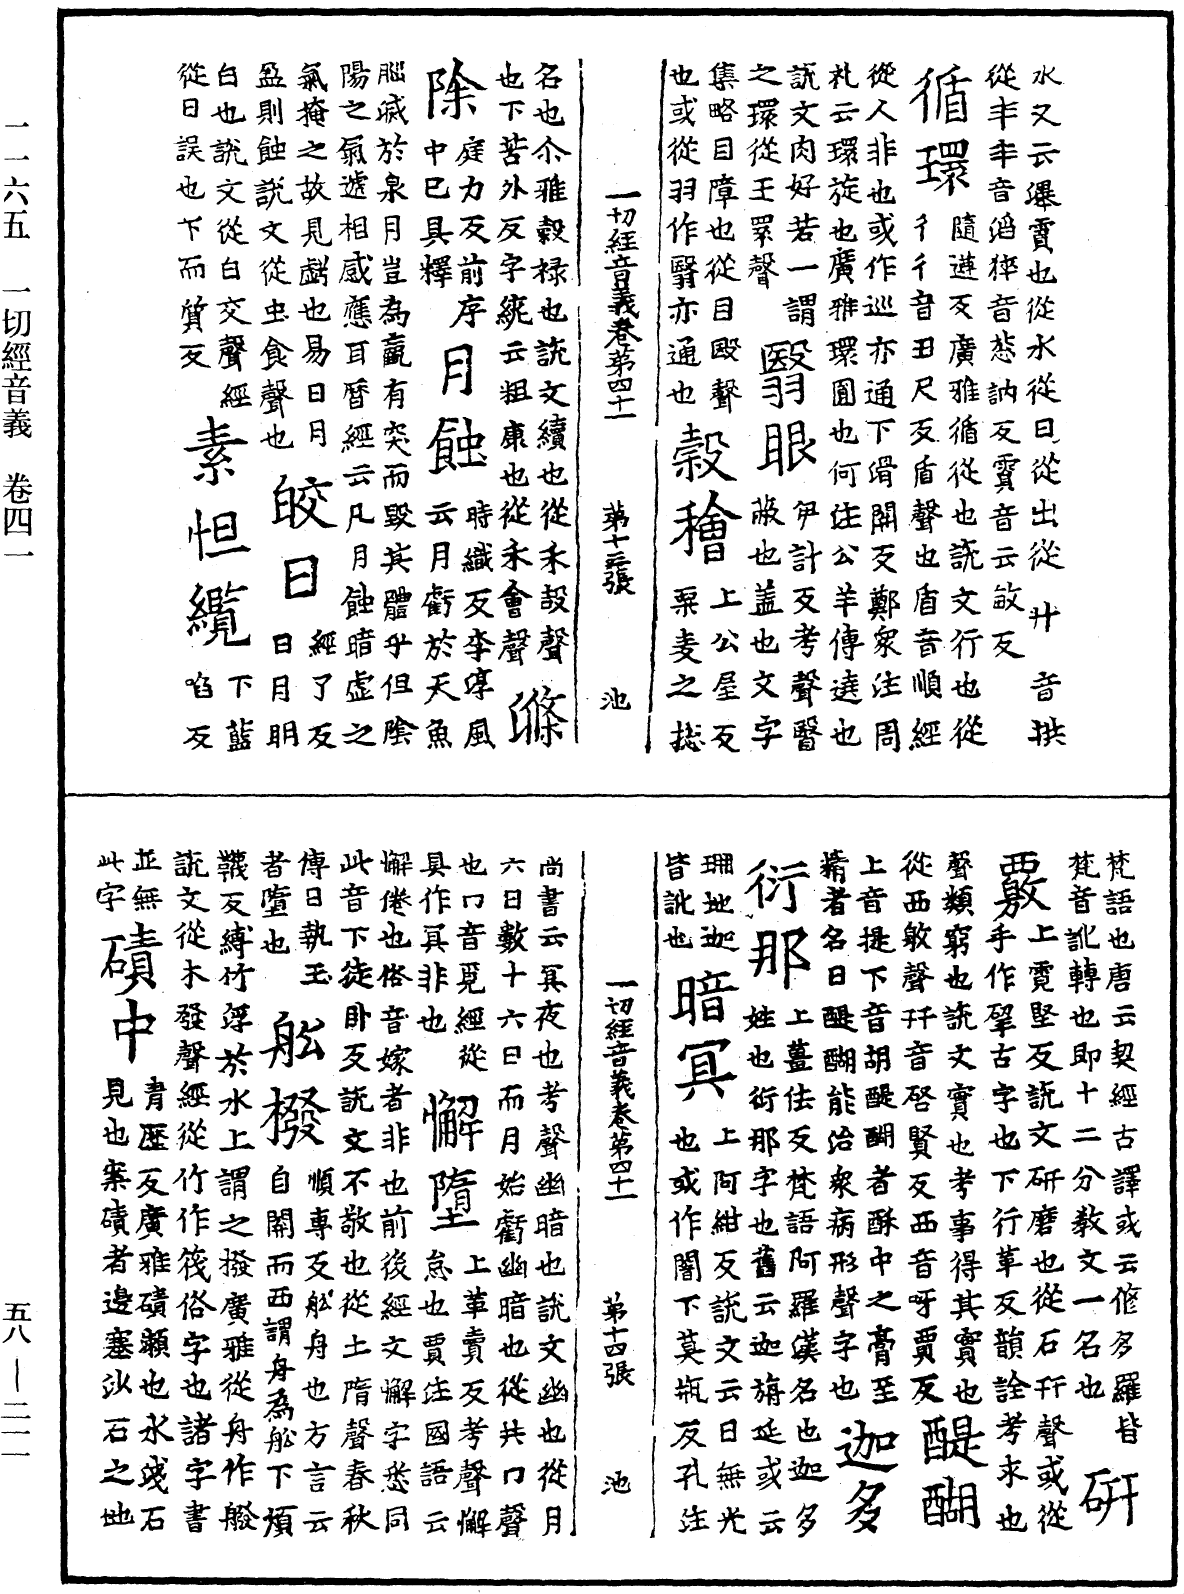 水又云㬥霣也從水從日從出從廾音拱
從㚔㚔音滔猝音怱訥反霣音云敏反
循環隨遵反廣雅循從也說文行也從
彳彳音丑尺反盾聲也盾音順經
從人非也或作巡亦通下滑關反鄭衆注周
札云環旋也廣雅環圓也何注公羊傳遶也
說文肉好若一謂
之環從王睘聲
翳眼伊計反考聲翳
蔽也盖也文字
集略目障也從目殹聲
也或從羽作翳亦通也
穀穭上公屋反
粟麦之捴
一切經音義卷第四十一 第十三張 池
名也尒雅穀禄也說文續也從禾㱿聲
也下苦外反字統云粗康也從禾會聲
滌
除庭力反前序
中已具釋
月蝕時織反李淳風
云月虧於天魚
䐉減於泉月豈為羸有突而毀其體乎但陰
陽之氣遞相感應耳曆經云凡月蝕暗虛之
氣掩之故見虧也易日月
盈則蝕說文從虫食聲也
皎日經了反
日月明
白也說文從白交聲經
從日誤也下而質反
素怛纜下藍
啗反
梵語也唐云契經古譯或云修多羅皆
梵音訛轉也即十二分教文一名也
研
覈上霓堅反說文研磨也從石幵聲或從
手作揅古字也下行革反韻詮考求也
聲類窮也說文實也考事得其實也
從襾敫聲幵音啓賢反襾音呀賈反
醍醐
上音提下音胡醍醐者酥中之膏至
精者名日醍醐能治衆病形聲字也
迦多
衍那上薑佉反梵語阿羅漢名也迦多
姓也衍那字也舊云迦旃延或云
珊地迦
皆訛也
暗冥上阿紺反說文云日無光
也或作闇下莫瓶反孔注
一切經音義卷第四十一 第十四張 池
尚書云冥夜也考聲幽暗也說文幽也從月
六日數十六日而月始虧幽暗也從共冖聲
也冖音覓經從
具作㝠非也
懈墮上革賣反考聲懈
怠也賈注國語云
懈倦也俗音嫁者非也前後經文懈字悉同
此音下徒卧反說文不敬也從土隋聲春秋
傳日執玉
者墮也
舩橃順專反舩舟也方言云
自關而西謂舟為舩下煩
韈反縛竹浮於水上謂之撥廣雅從舟作艬
說文從木發聲經從竹作筏俗字也諸字書
並無
此字
磧中青歷反廣雅磧瀨也水淺石
見也案磧者邊塞沙石之地
一一六五 一切經音義 卷四一
五八—二一一